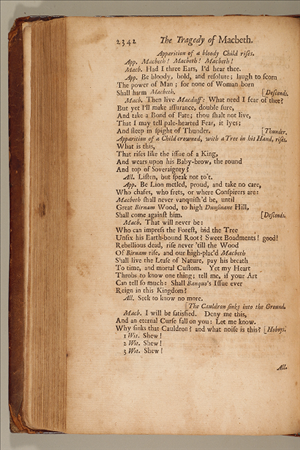 2342 The Tragedy of Macbeth.
Apparition of a bloody Child rises.
App. Macbeth! Macbeth! Macbeth!
Macb. Had I three Ears, I'd hear thee.
App. Be bloody, bold, and resolute; laugh to scorn
The power of Man; for none of Woman born
Shall harm Macbeth. [Descends.
Macb. Then live Macduff: What need I fear of thee?
But yet I'll make assurance, double sure,
And take a Bond of Fate; thou shalt not live,
That I may tell pale-hearted Fear, it lyes;
And sleep in spight of Thunder. [Thunder.
Apparition of a Child crowned, with a Tree in his Hand, rises.
What is this,
That rises like the issue of a King,
And wears upon his Baby-brow, the round
And top of Soveraignty?
All. Listen, but speak not to't.
App. Be Lion metled, proud, and take no care,
Who chafes, who frets, or where Conspirers are:
Macbeth shall never vanquish'd be, until
Great Birnam Wood, to high Dunsinane Hill,
Shall come against him. [Descends.
Macb. That will never be:
Who can impress the Forest, bid the Tree
Unfix his Earth-bound Root? Sweet Boadments! good!
Rebellious dead, rise never 'till the Wood
Of Birnam rise, and our high-plac'd Macbeth
Shall live the Lease of Nature, pay his breath
To time, and mortal Custom. Yet my Heart
Throbs to know one thing; tell me, if your Art
Can tell so much: Shall Banquo's Issue ever
Reign in this Kingdom?
All. Seek to know no more.
[The Cauldron sinks into the Ground.
Macb. I will be satisfied. Deny me this,
And an eternal Curse fall on you: Let me know.
Why sinks that Cauldron? and what noise is this? [Hoboys.
1 Wit. Shew!
2 Wit. Shew!
3 Wit. Shew!
All.